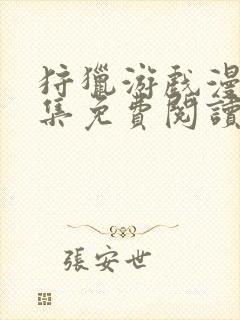 狩獵游戲漫
集免費閱讀
張安世